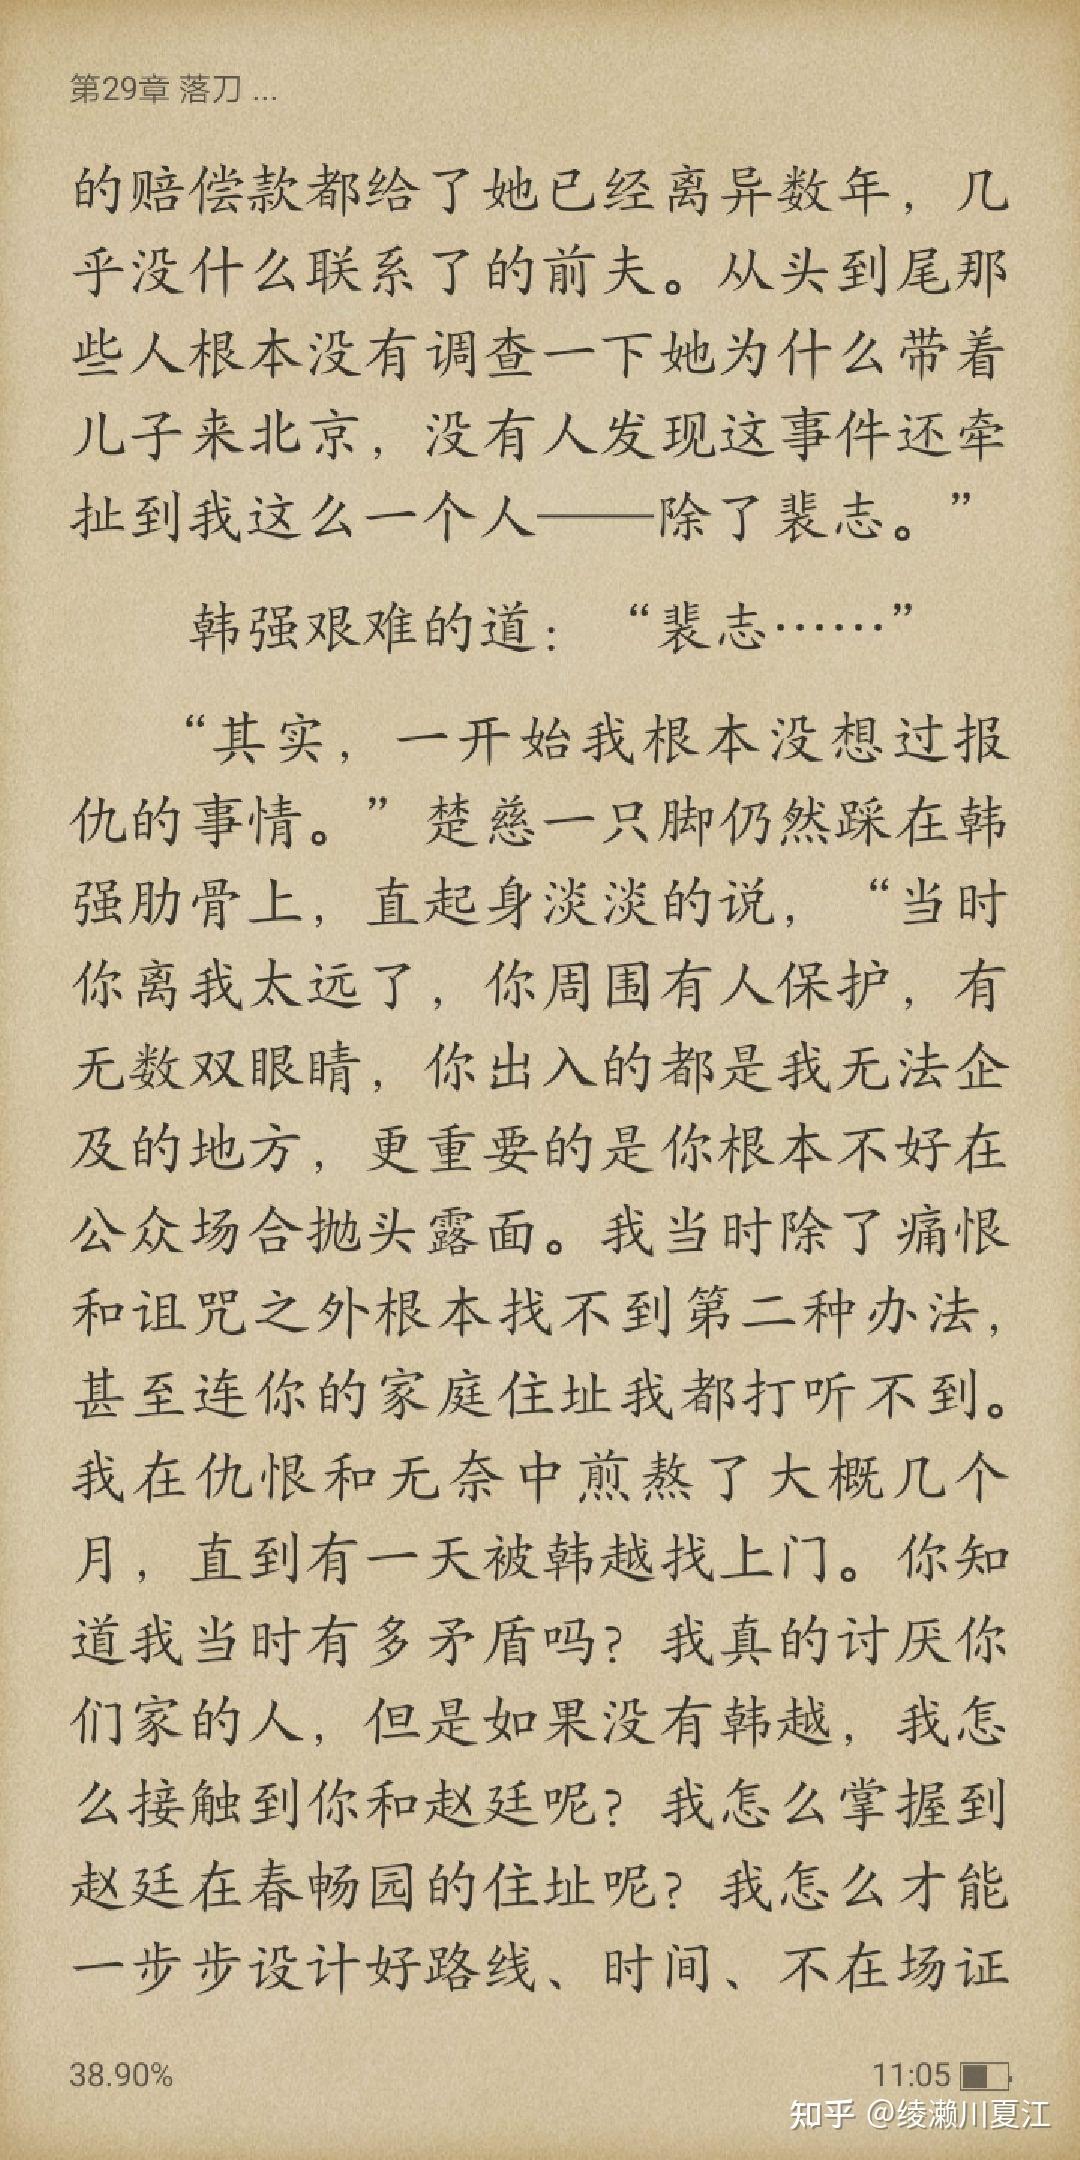 第29章 落刀 ...
的赔偿款都给了她已经离异数年，几
乎没什么联系了的前夫。从头到尾那
些人根本没有调查一下她为什么带着
儿子来北京，没有人发现这事件还牵
扯到我这么一个人——除了裴志。”
韩强艰难的道：“裴志……”
“其实，一开始我根本没想过报
仇的事情。”楚慈一只脚仍然踩在韩
强肋骨上，直起身淡淡的说，“当时
你离我太远了，你周围有人保护，有
无数双眼睛，你出入的都是我无法企
及的地方，更重要的是你根本不好在
公众场合抛头露面。我当时除了痛恨
和诅咒之外根本找不到第二种办法，
甚至连你的家庭住址我都打听不到。
我在仇恨和无奈中煎熬了大概几个
月，直到有一天被韩越找上门。你知
道我当时有多矛盾吗？我真的讨厌你
们家的人，但是如果没有韩越，我怎
么接触到你和赵廷呢？我怎么掌握到
赵廷在春畅园的住址呢？我怎么才能
一步步设计好路线、时间、不在场证
38.90%
11:05
知乎 @绫濑川夏江